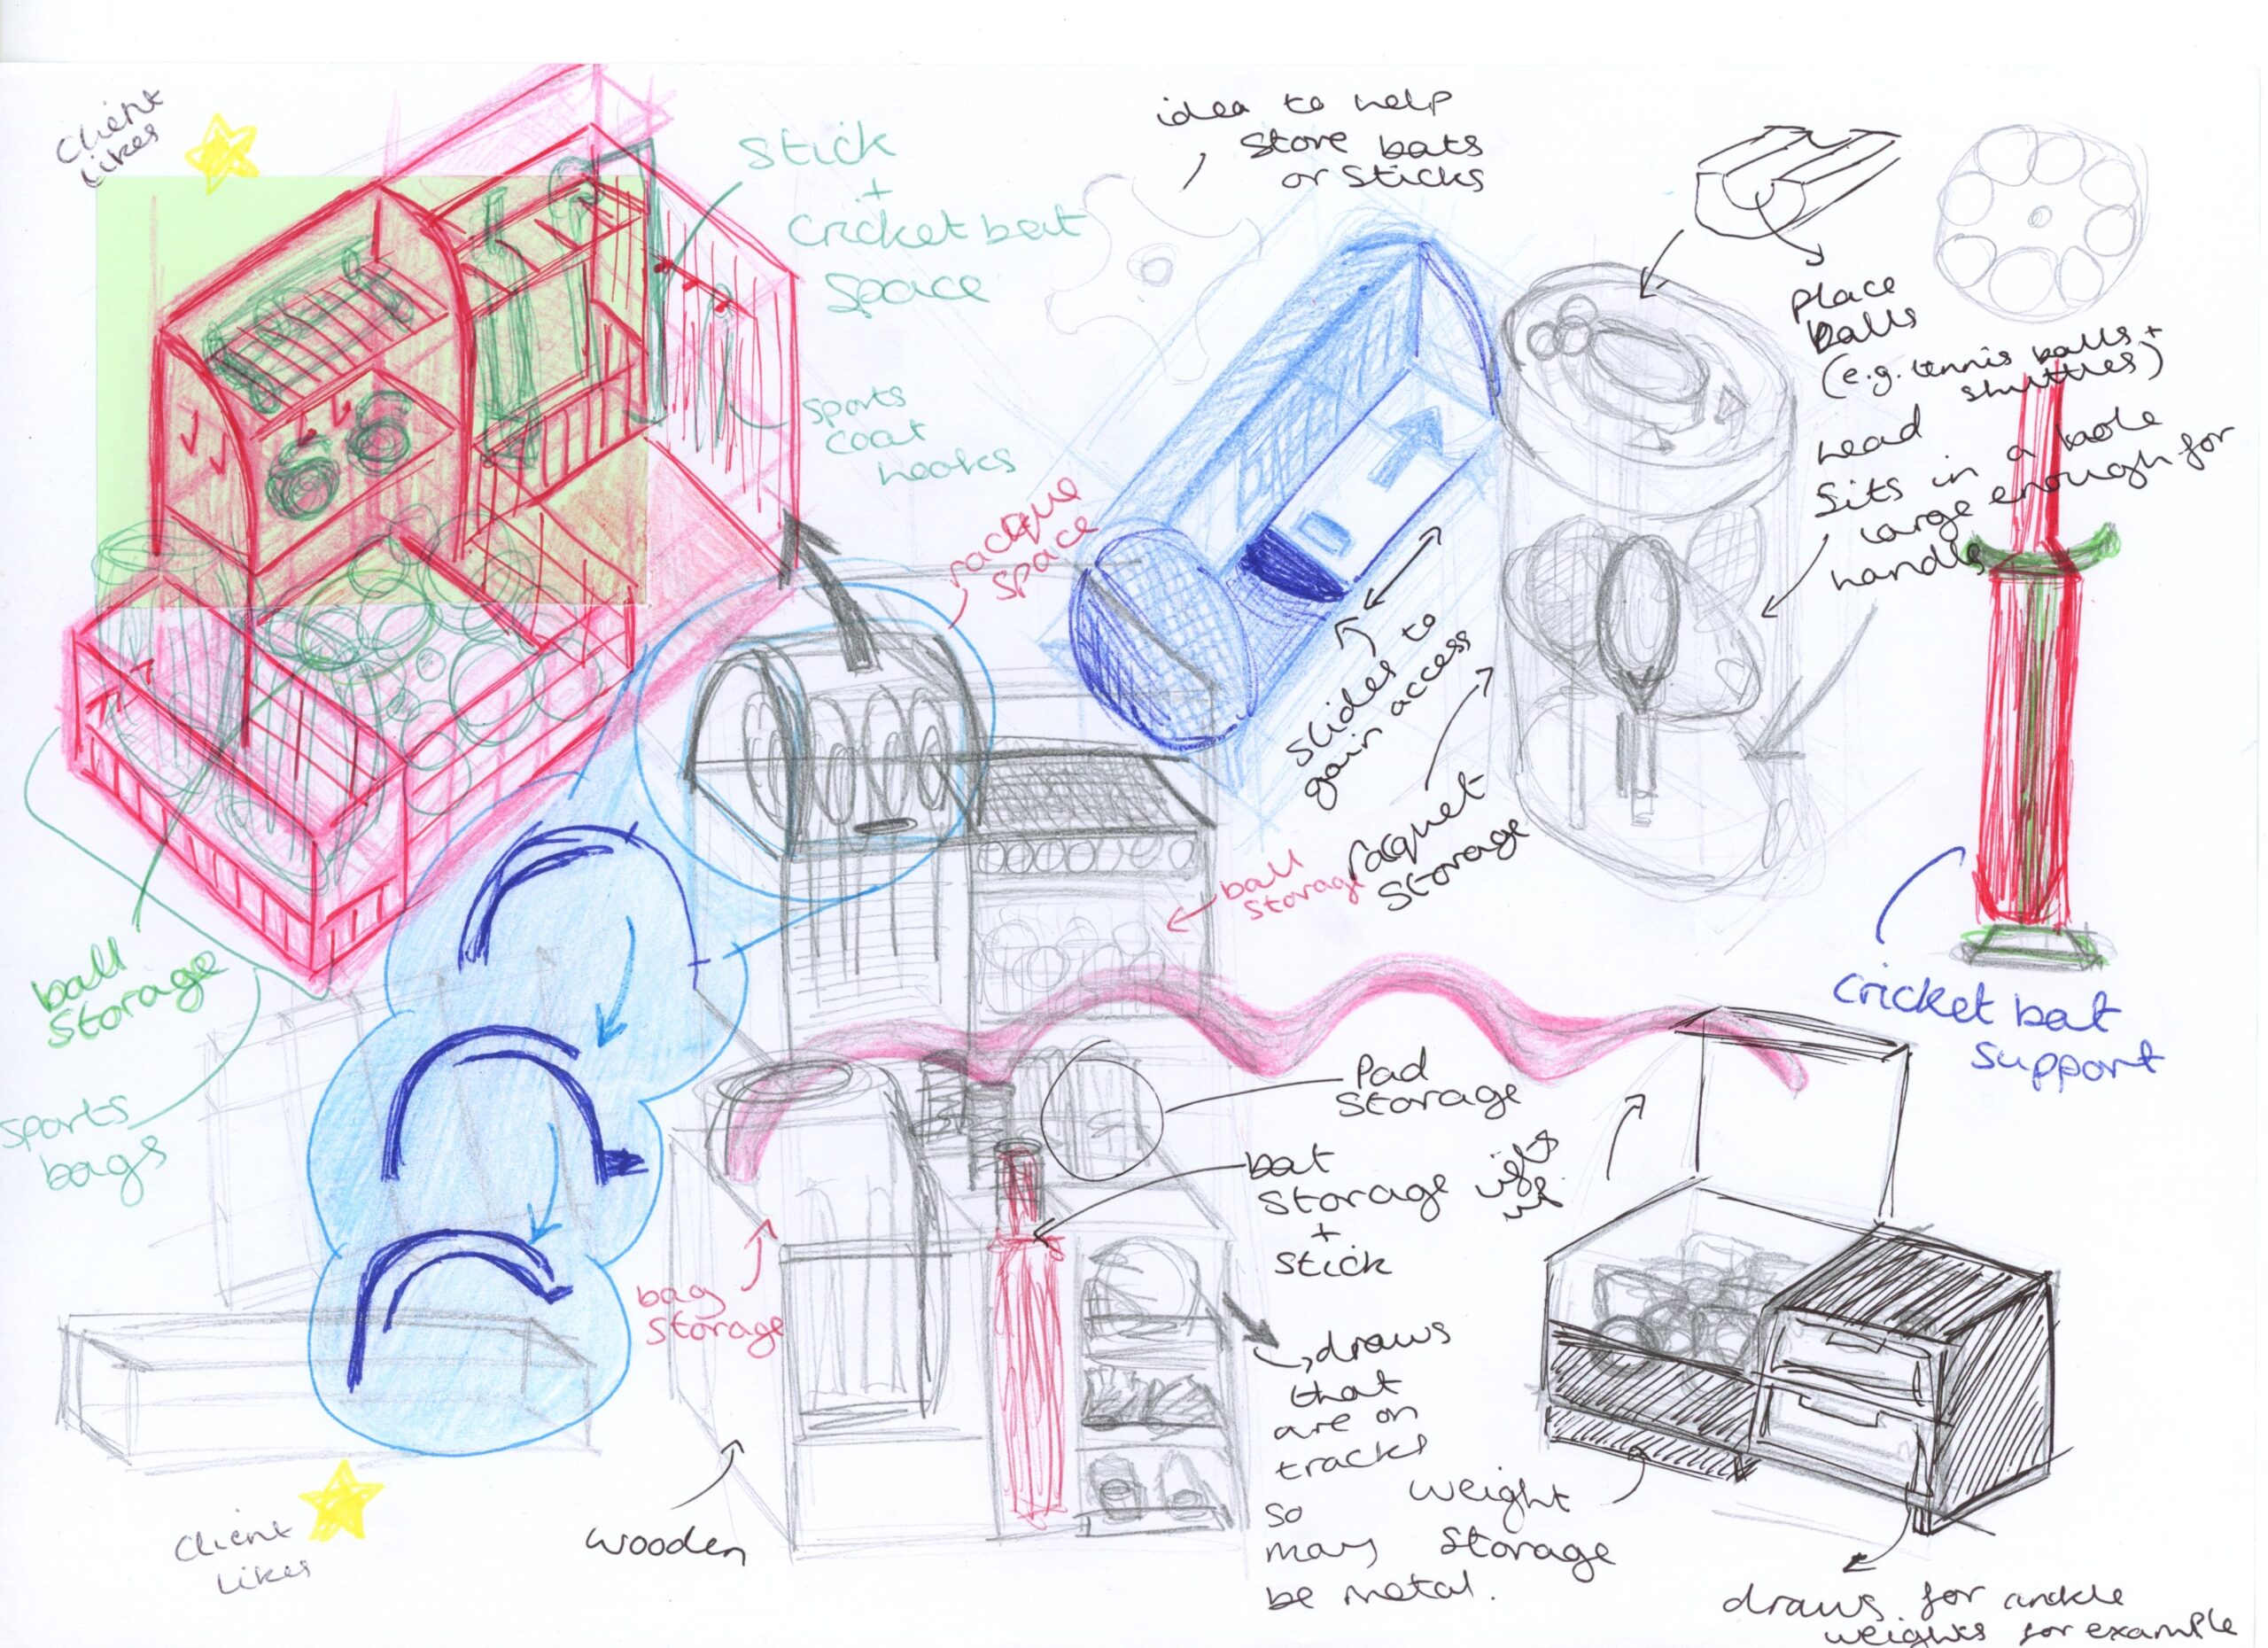 Client
Likes
Stick
+
Cricket bat
Space
Sports
coat
hooks
idea to help
Store bats
or Sticks
Place
Balls
(e.g. tennis balls +
shuttles)
head
Sits in a hole
large enough for
handle
racque
space
slides to
gain access
racquet
Storage
ball
Storage
Cricket bat
Support
ball
Storage
Sports
bags
Pad
Storage
bat
Storage
+
Stick
lifts
up
bag
Storage
draws
that
are on
tracks
so
may
be metal.
wooden
Weight
Storage
draws for ankle
weights for example
Client
Likes